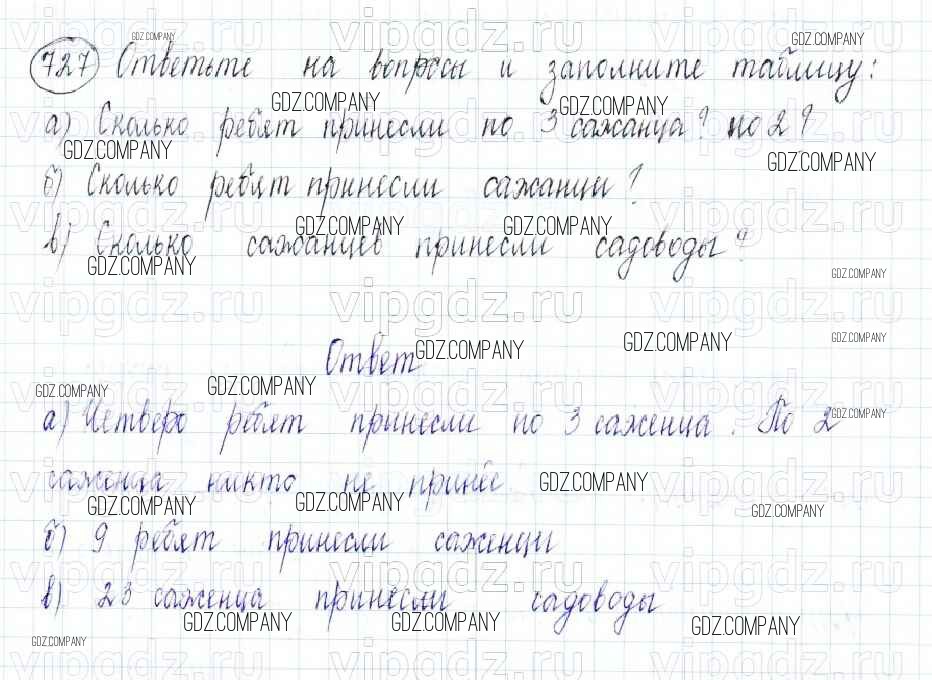 727 Ответьте на вопросы и заполните таблицу:
а) Сколько ребят принесли по 3 сажанца? по 2?
б) Сколько ребят принесли сажанцы?
в) Сколько сажанцев принесли садоводы?
Ответ
а) Четверо ребят принесли по 3 саженца. По 2
саженца никто не принёс
б) 9 ребят принесли саженцы
в) 23 саженца принесли садоводы